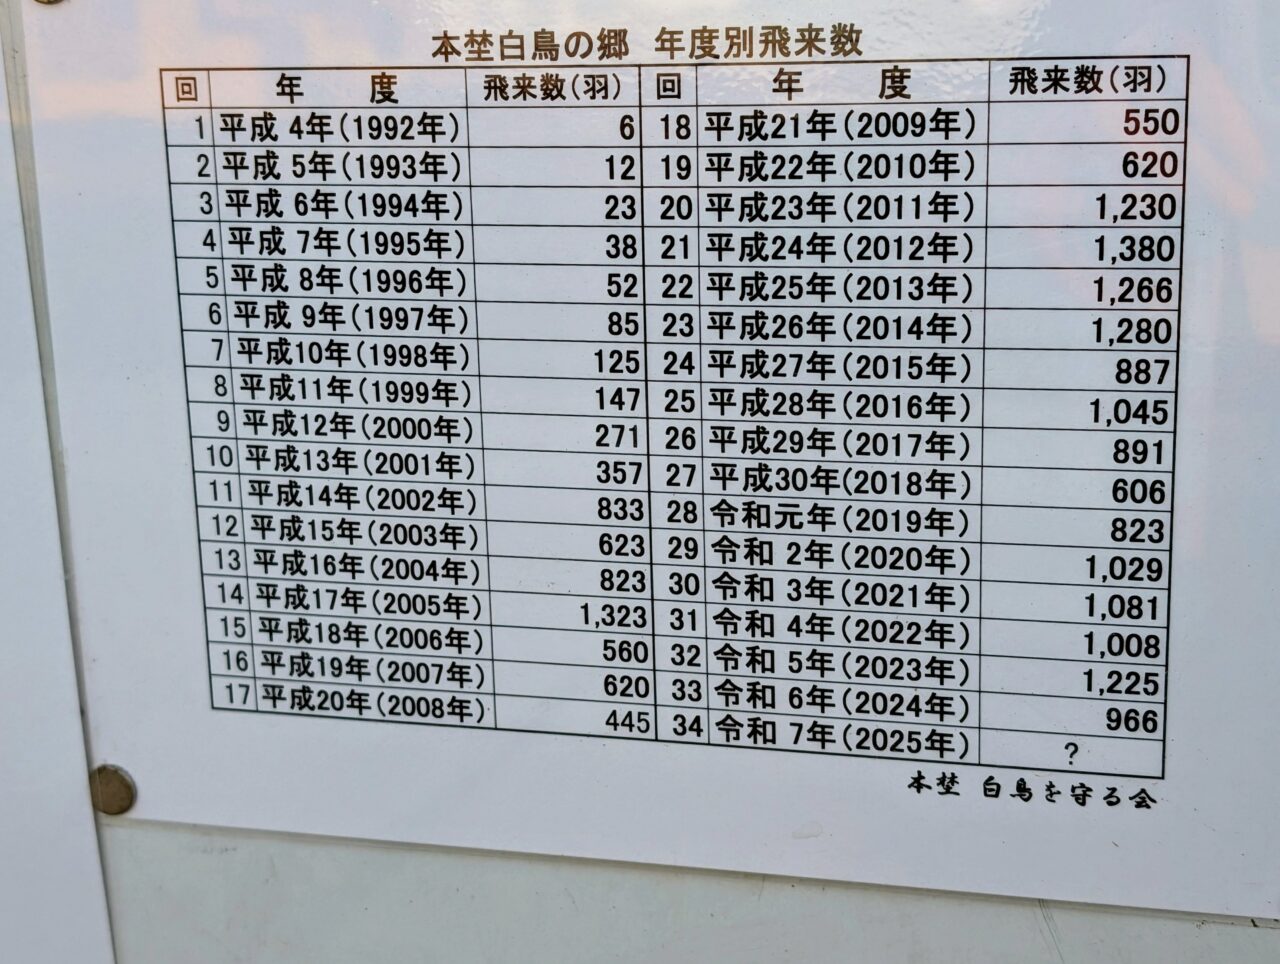 本埜白鳥の郷 年度別飛来数
回 年 度 飛来数(羽) 回 年 度 飛来数(羽)
1 平成 4年(1992年) 6 18 平成21年(2009年) 550
2 平成 5年(1993年) 12 19 平成22年(2010年) 620
3 平成 6年(1994年) 23 20 平成23年(2011年) 1,230
4 平成 7年(1995年) 38 21 平成24年(2012年) 1,380
5 平成 8年(1996年) 52 22 平成25年(2013年) 1,266
6 平成 9年(1997年) 85 23 平成26年(2014年) 1,280
7 平成10年(1998年) 125 24 平成27年(2015年) 887
8 平成11年(1999年) 147 25 平成28年(2016年) 1,045
9 平成12年(2000年) 271 26 平成29年(2017年) 891
10 平成13年(2001年) 357 27 平成30年(2018年) 606
11 平成14年(2002年) 833 28 令和元年(2019年) 823
12 平成15年(2003年) 623 29 令和 2年(2020年) 1,029
13 平成16年(2004年) 823 30 令和 3年(2021年) 1,081
14 平成17年(2005年) 1,323 31 令和 4年(2022年) 1,008
15 平成18年(2006年) 560 32 令和 5年(2023年) 1,225
16 平成19年(2007年) 620 33 令和 6年(2024年) 966
17 平成20年(2008年) 445 34 令和 7年(2025年) ?
本埜 白鳥を守る会